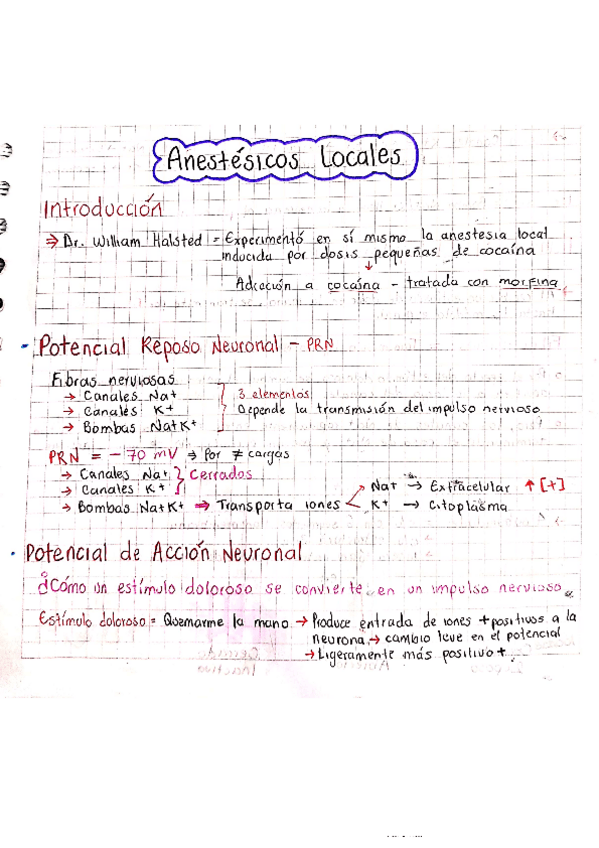 Anestésicos Locales
Introducción
⇒ Dr. William Halsted = Experimentó en sí mismo la anestesia local
inducida por dosis pequeñas de cocaína
↓
Adicción a cocaína - tratada con morfina
- Potencial Reposo Neuronal - PRN
Fibras nerviosas
→ Canales Na+
→ Canales K+
→ Bombas Na+K+
3 elementos
Depende la transmisión del impulso nervioso
PRN = -70 mV ⇒ Por ≠ cargas
→ Canales Na+
→ Canales K+
Cerrados
→ Bombas Na+K+ ⇒ Transporta iones
Na+ → Extracelular ↑ [+]
K+ → Citoplasma
· Potencial de Acción Neuronal
¿Cómo un estímulo doloroso se convierte en un impulso nervioso
Estímulo doloroso = Quemarme la mano → Produce entrada de iones + positivos a la
neurona → cambio leve en el potencial
→ Ligeramente más positivo +